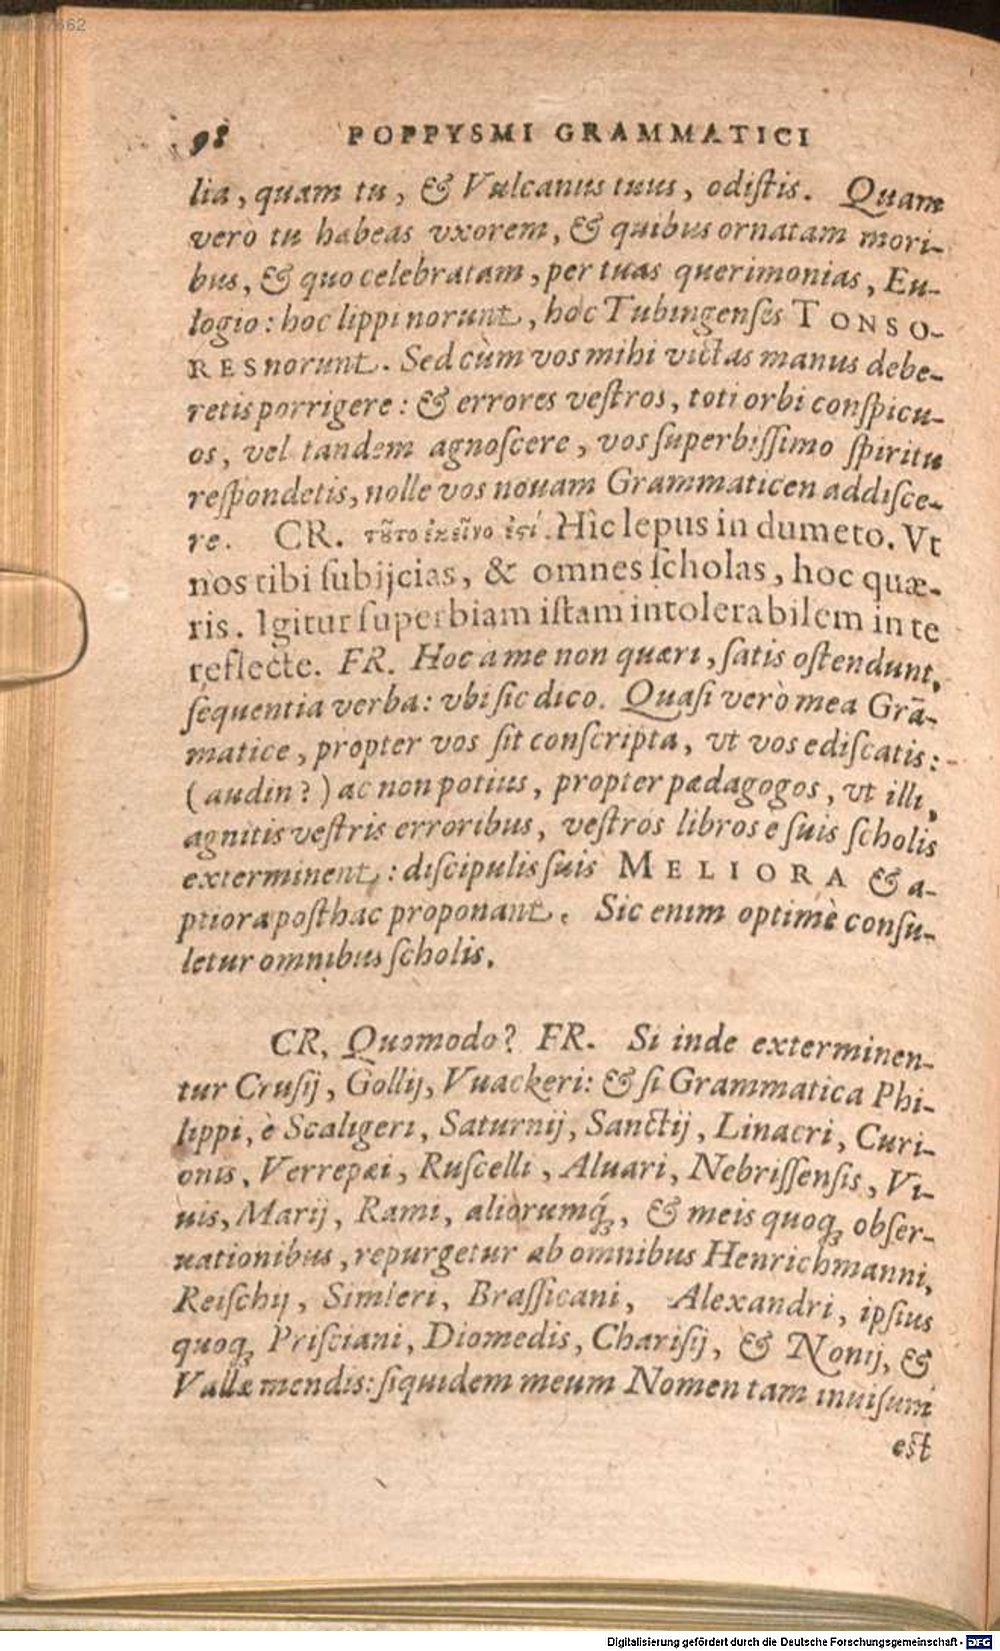 98 POPPYSMI GRAMMATICI
lia, quam tu, & Vulcanus tuus, odiſtis. Quam
verò tu habeas vxorem, & quibus ornatam mori-
bus, & quo celebratam, per tuas querimonias, Eu-
logio: hoc lippi norunt, hoc Tubingenſes TONSO-
RES norunt. Sed cùm vos mihi victas manus debe-
retis porrigere: & errores veſtros, toti orbi conſpicu-
os, vel tandem agnoſcere, vos ſuperbiſſimo ſpiritu
reſpondetis, nolle vos nouam Grammaticen addiſce-
re. CR. τȣ̃το ἐκεῖνο ἐϛί. Hîc lepus in dumeto. Vt
nos tibi ſubijcias, & omnes ſcholas, hoc quæ-
ris. Igitur ſuperbiam iſtam intolerabilem in te
reflecte. FR. Hoc a me non quæri, ſatis oſtendunt,
ſequentia verba: vbi ſic dico. Quaſi verò mea Grā-
matice, propter vos ſit conſcripta, vt vos ediſcatis:
(audin?) ac non potius, propter pædagogos, vt illi,
agnitis veſtris erroribus, veſtros libros e ſuis ſcholis
exterminent: diſcipulis ſuis MELIORA & a-
ptiora poſthac proponant. Sic enim optimè conſu-
letur omnibus ſcholis.
CR. Quomodo? FR. Si inde exterminen-
tur Cruſij, Gollij, Vuackeri: & ſi Grammatica Phi-
lippi, è Scaligeri, Saturnij, Sanctij, Linacri, Curi-
onis, Verrepæi, Ruſcelli, Aluari, Nebriſſenſis, Vi-
uis, Marij, Rami, aliorumq́ꝫ, & meis quoqꝫ obſer-
uationibus, repurgetur ab omnibus Henrichmanni,
Reiſchij, Simleri, Braſſicani, Alexandri, ipſius
quoqꝫ Priſciani, Diomedis, Chariſij, & Nonij, &
Vallæ mendis: ſiquidem meum Nomen tam inuiſum
eſt
Digitalisierung gefördert durch die Deutsche Forschungsgemeinschaft - DFG